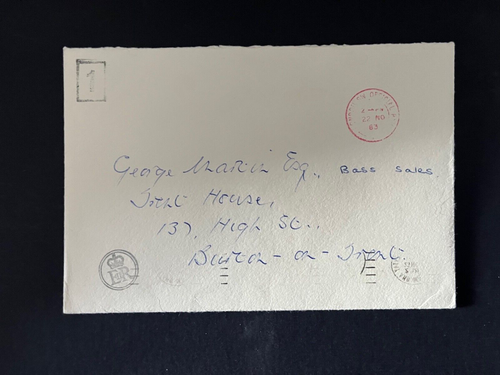 1
22 NO
63
George Martin Esq., Bass Sales.
Trent House,
137, High St.,
Burton-on-Trent.
EIIR